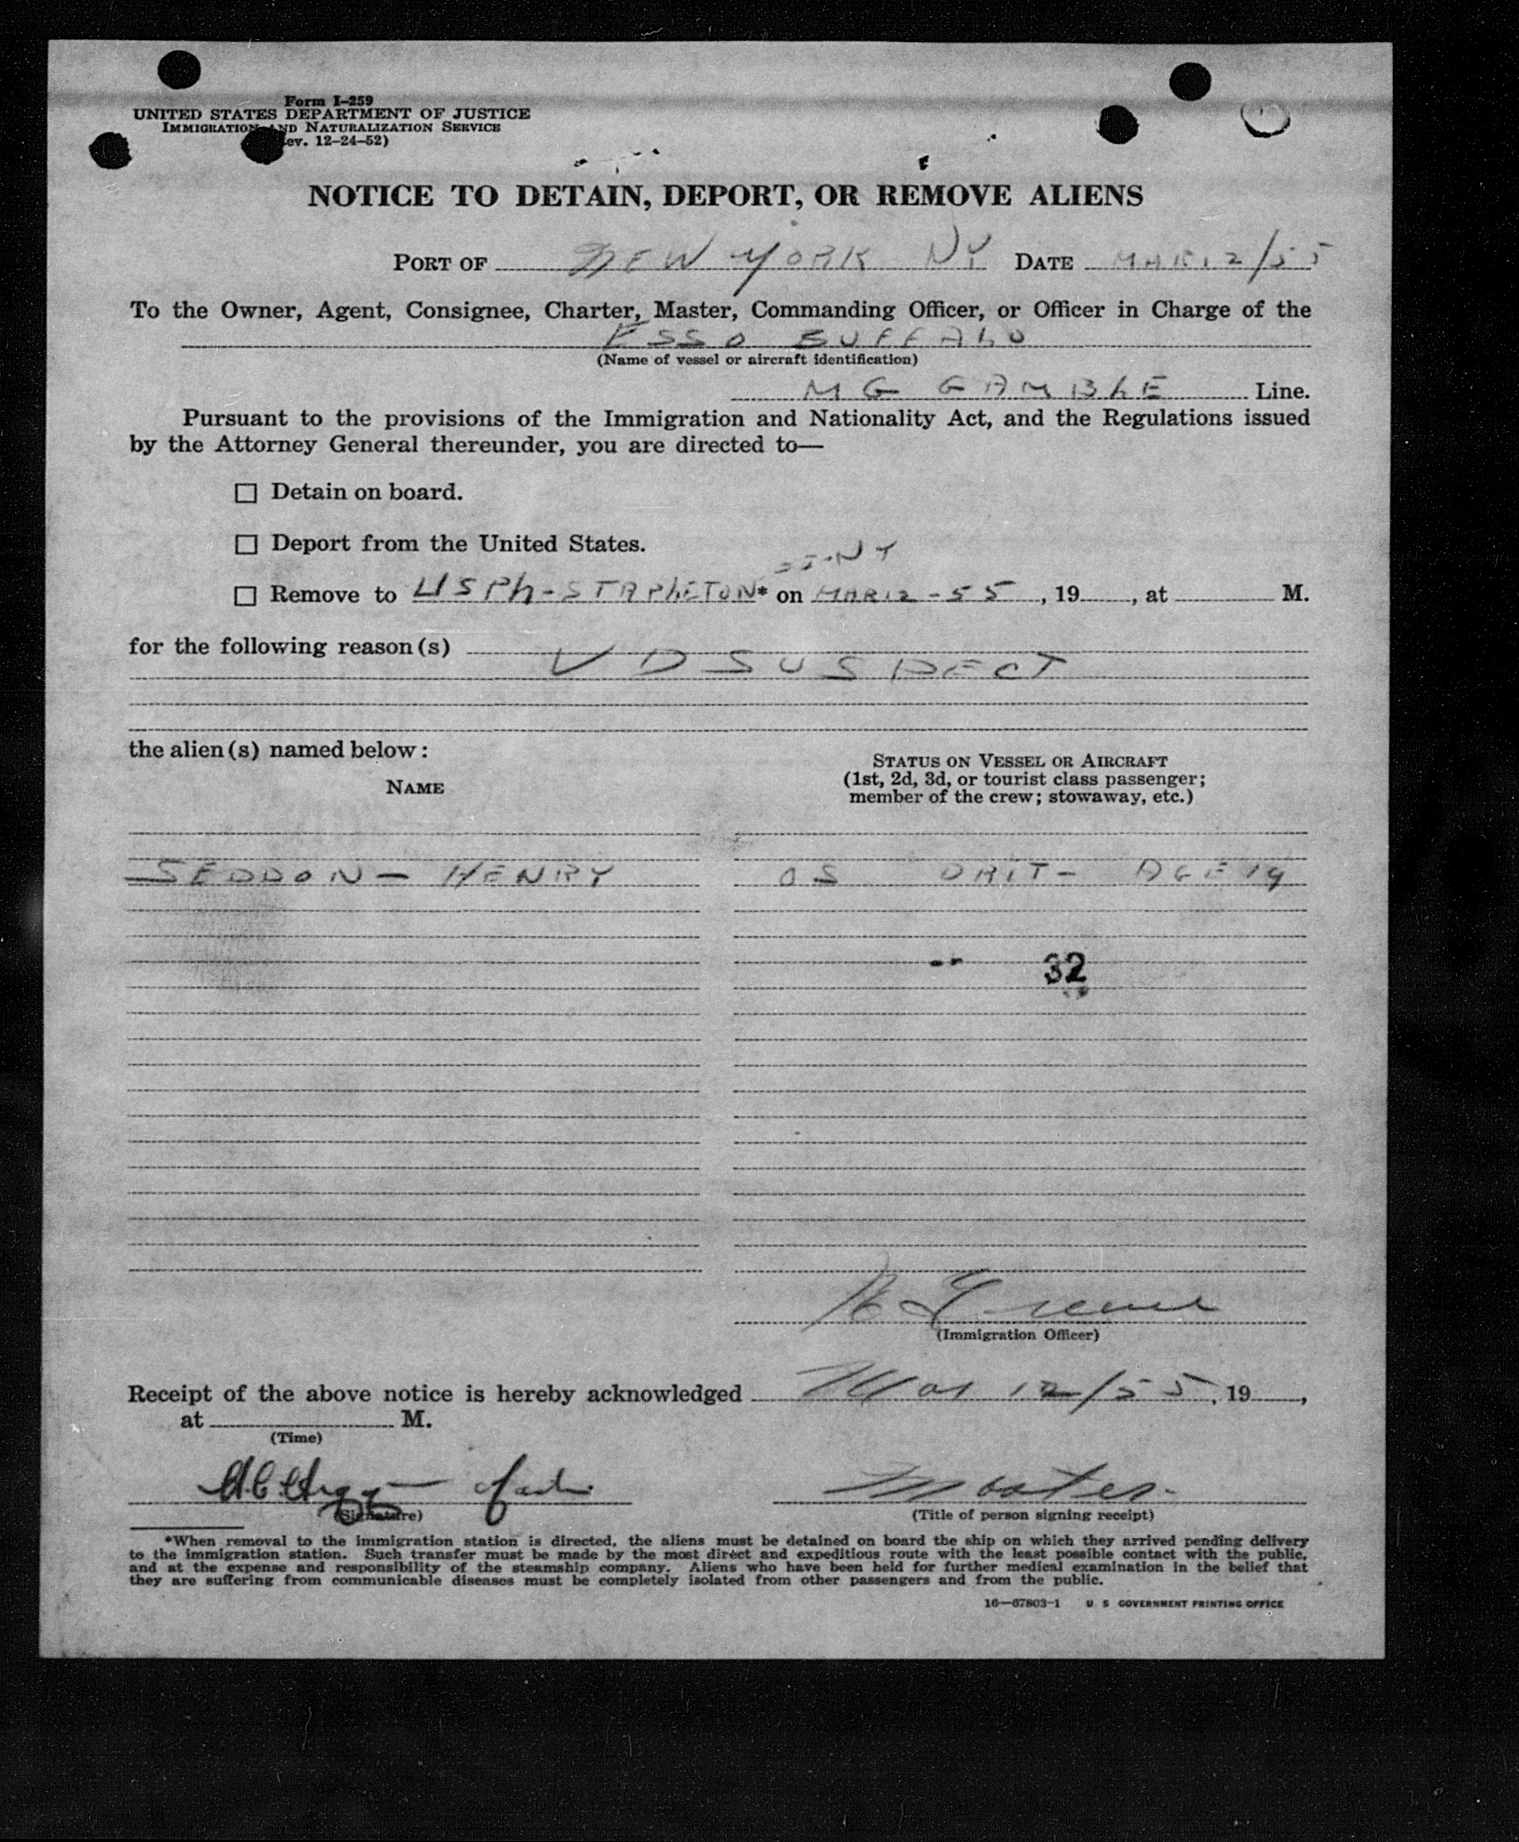 Form I-259
UNITED STATES DEPARTMENT OF JUSTICE
IMMIGRATION AND NATURALIZATION SERVICE
ev. 12-24-52)
NOTICE TO DETAIN, DEPORT, OR REMOVE ALIENS
PORT OF NEW YORK NY DATE MAR 12/55
To the Owner, Agent, Consignee, Charter, Master, Commanding Officer, or Officer in Charge of the
ESSO BUFFALO
(Name of vessel or aircraft identification)
MG GAMBLE Line.
Pursuant to the provisions of the Immigration and Nationality Act, and the Regulations issued
by the Attorney General thereunder, you are directed to—
☐ Detain on board.
☐ Deport from the United States.
☐ Remove to USPH-STAPLETON* on MAR 12-55, 19 , at M.
for the following reason(s)
VD SUSPECT
the alien(s) named below:
NAME
STATUS ON VESSEL OR AIRCRAFT
(1st, 2d, 3d, or tourist class passenger;
member of the crew; stowaway, etc.)
SEDDON - HENRY OS BRIT - AGE 19
32
(Immigration Officer)
Receipt of the above notice is hereby acknowledged Mar 12/55, 19 ,
at M.
(Time)
Master
(Signature) (Title of person signing receipt)
*When removal to the immigration station is directed, the aliens must be detained on board the ship on which they arrived pending delivery
to the immigration station. Such transfer must be made by the most direct and expeditious route with the least possible contact with the public,
and at the expense and responsibility of the steamship company. Aliens who have been held for further medical examination in the belief that
they are suffering from communicable diseases must be completely isolated from other passengers and from the public.
16—67803-1 U S GOVERNMENT PRINTING OFFICE